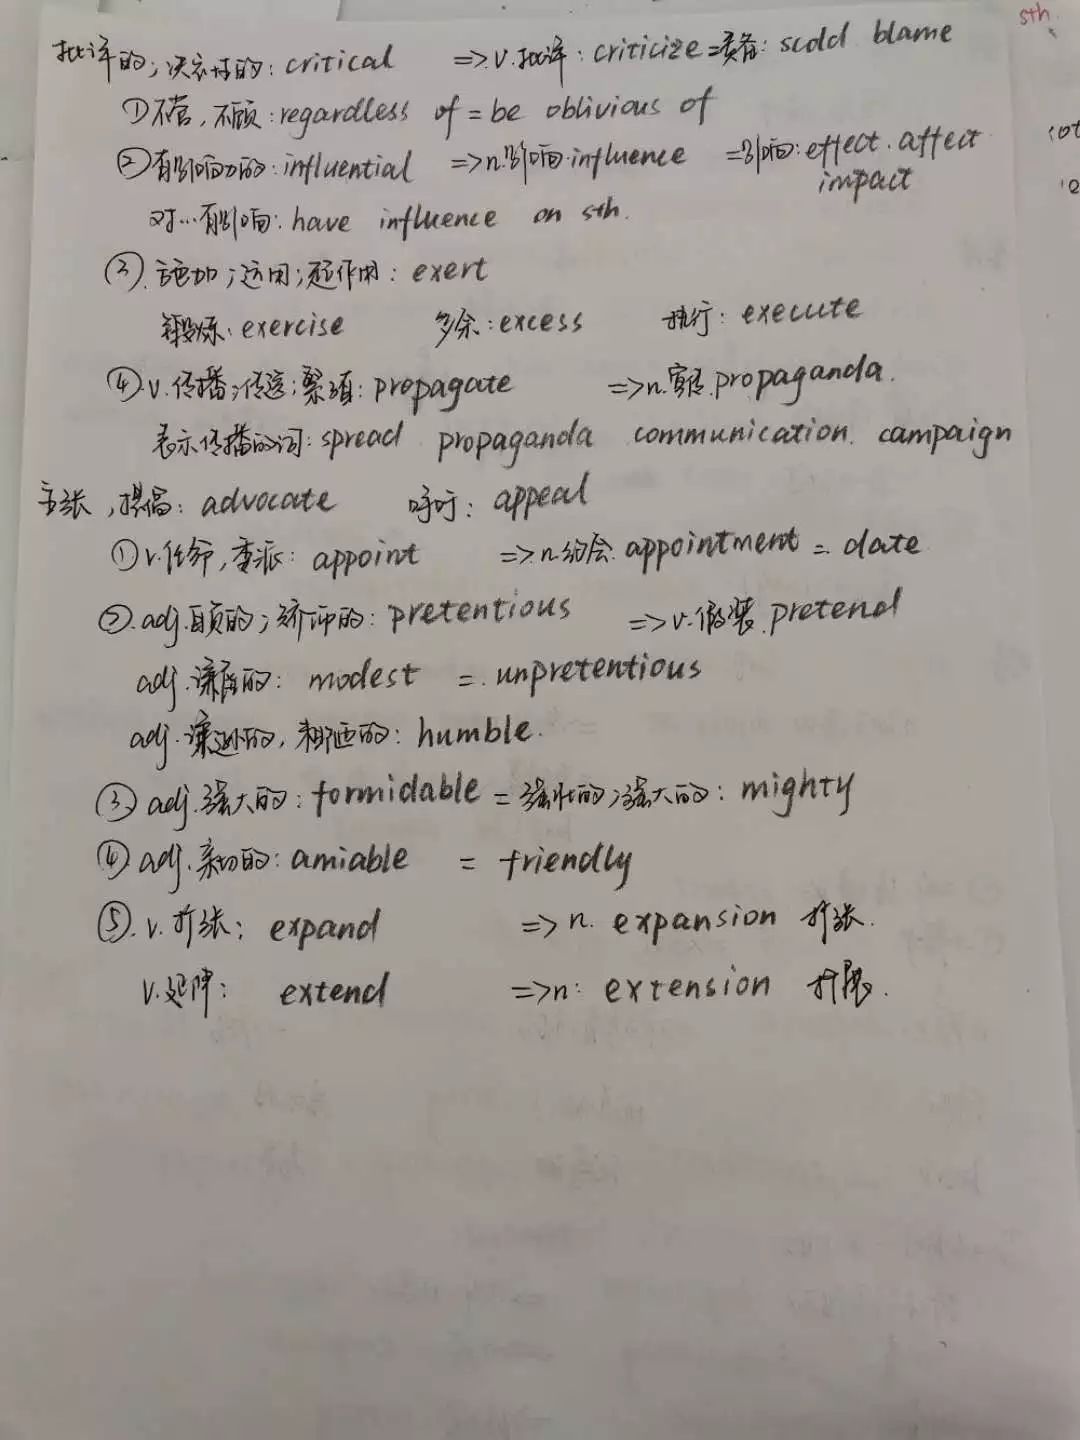 sth.
批评的;决定性的:critical => v.批评:criticize =责备:scold blame
①不管,不顾:regardless of = be oblivious of
②有影响力的:influential => n.影响.influence =影响:effect.affect
impact
对…有影响:have influence on sth.
③.施加;运用;起作用:exert
锻炼:exercise 多余:excess 执行:execute
④.v.传播;传送;繁殖:propagate => n.宣传.propaganda.
表示传播的词:spread propaganda communication. campaign
主张,提倡:advocate 呼吁:appeal
①v.任命,委派:appoint => n.约会.appointment = date
②.adj.自负的;矫饰的:pretentious => v.假装.pretend
adj.谦虚的:modest =.unpretentious
adj.谦逊的,粗陋的:humble.
③adj.强大的:formidable = 强壮的;强大的:mighty
④adj.亲切的:amiable = friendly
⑤.v.扩张:expand => n. expansion 扩张.
v.延伸:extend => n: extension 扩展.